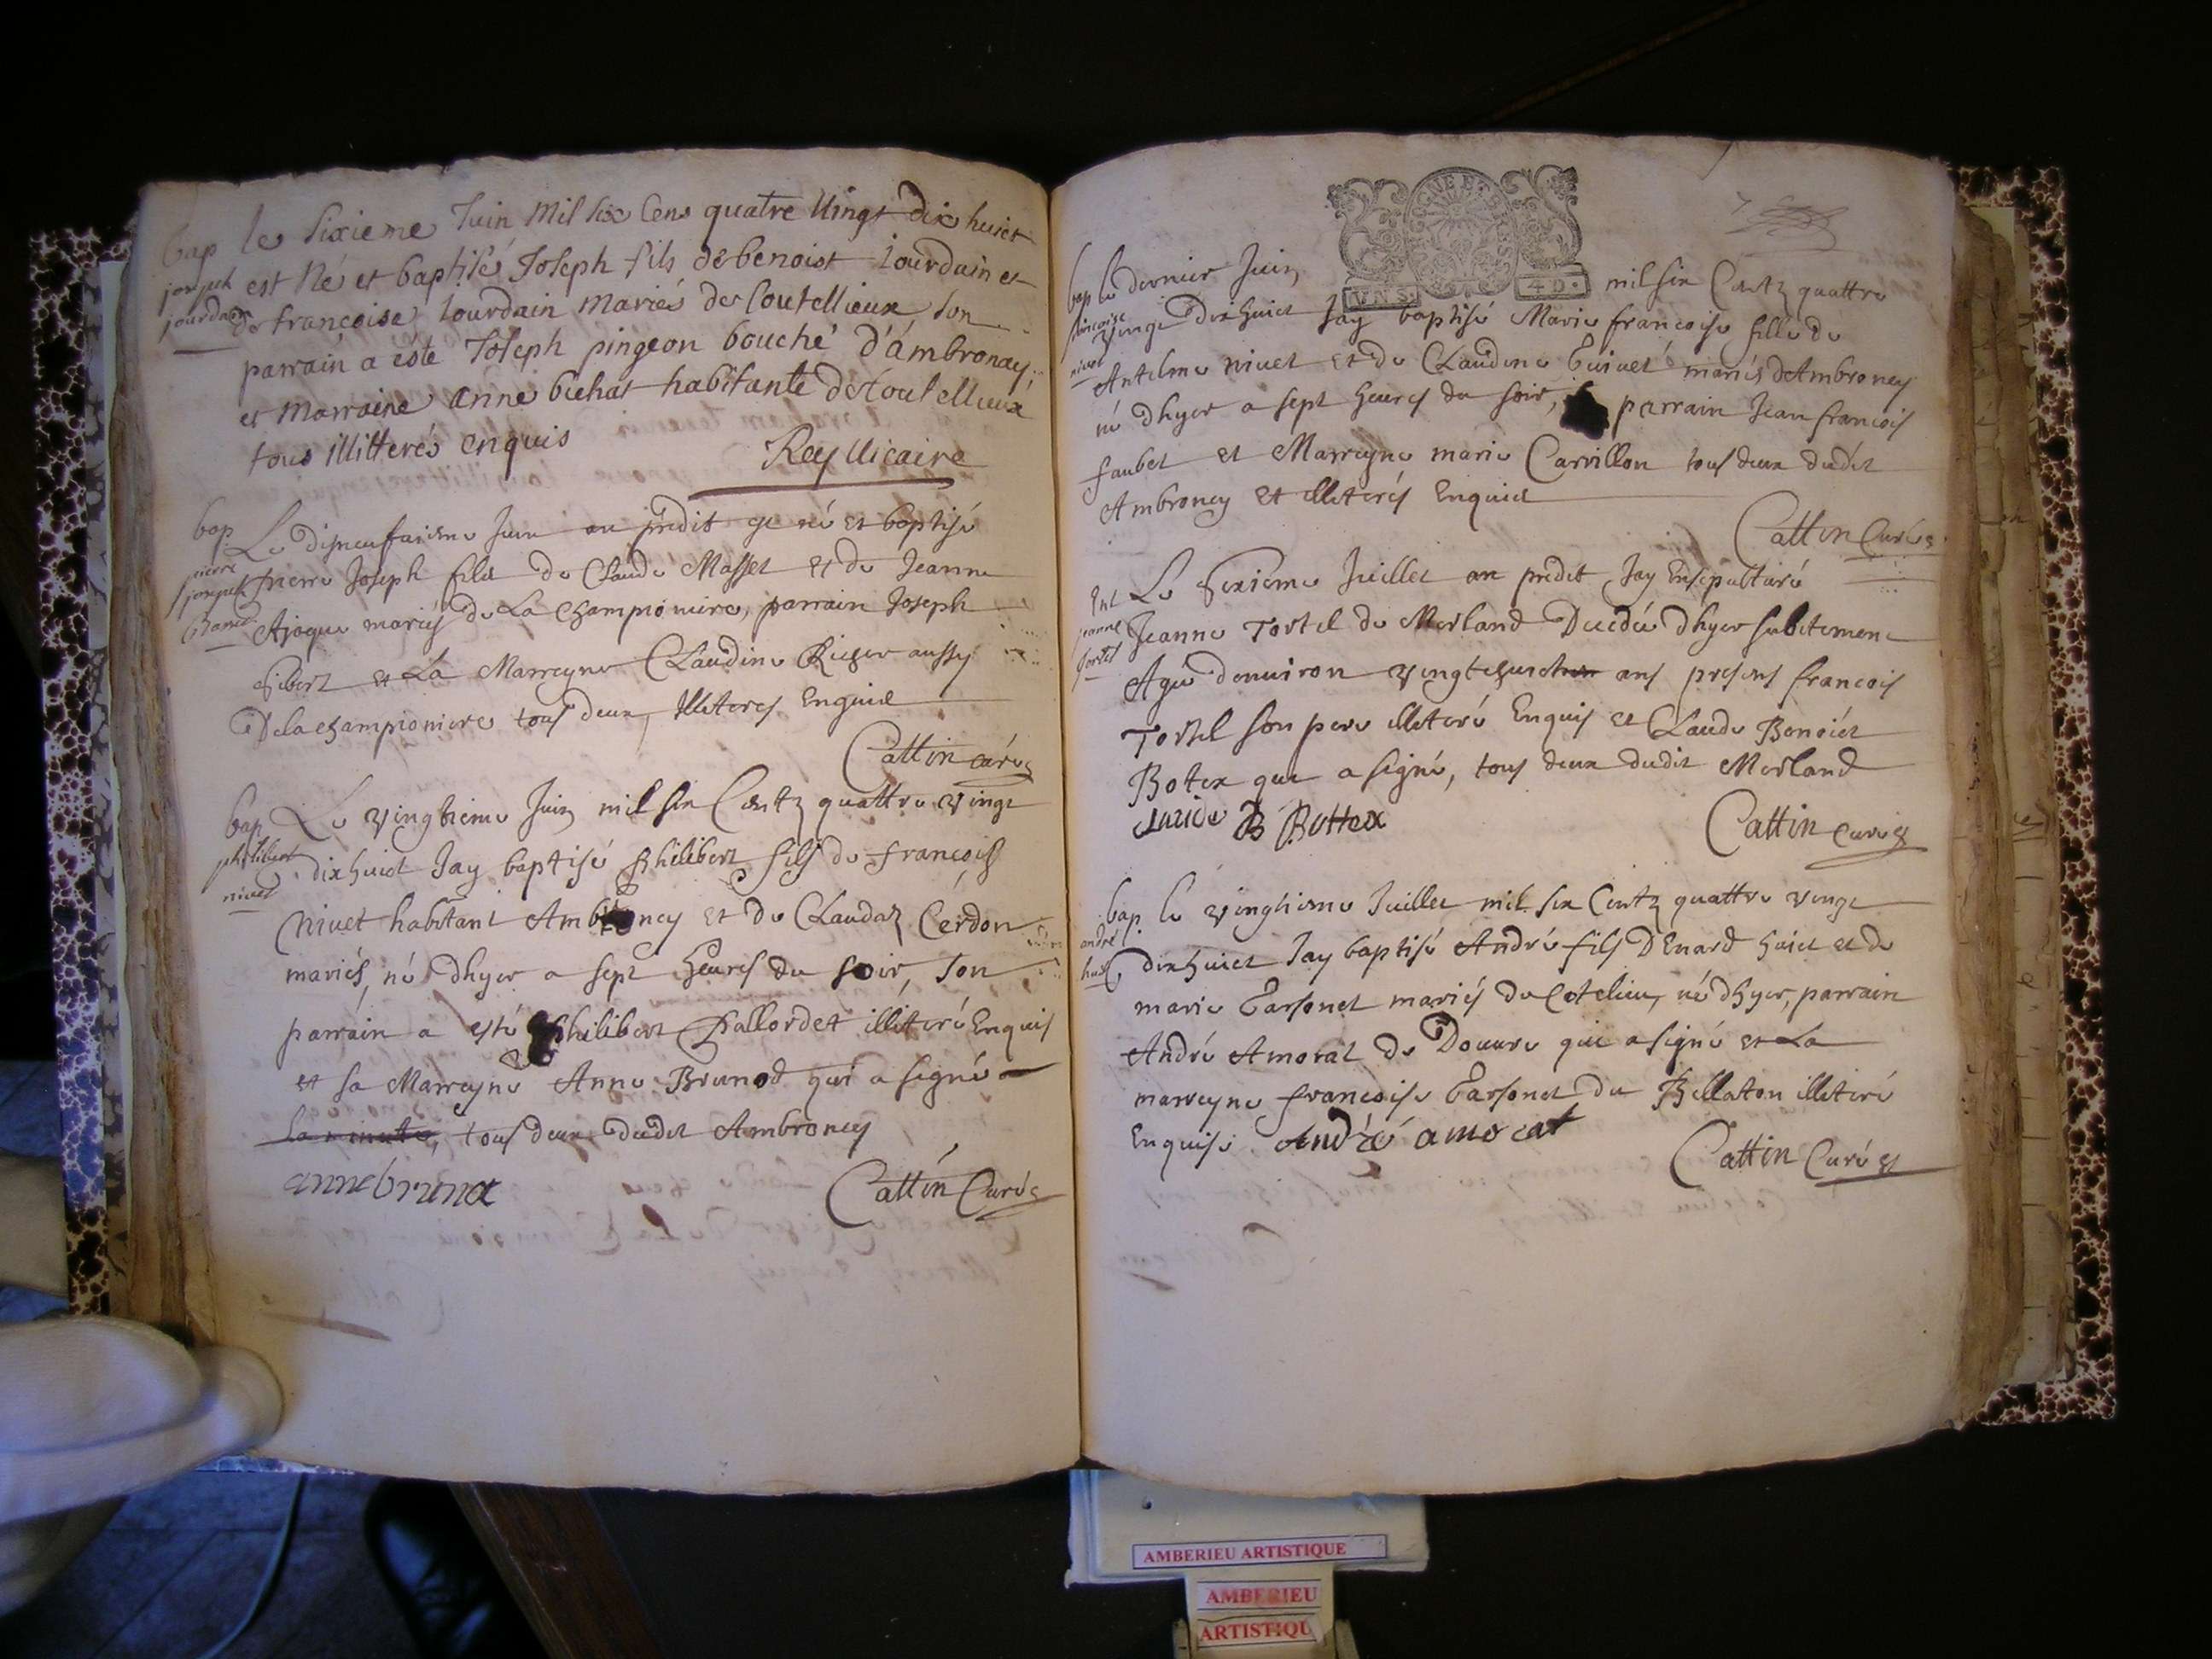 bap le sixieme Juin mil six Cens quatre Vingt dix huict
joseph jourdain
est Né et baptisé Joseph fils de benoist Jourdain et
de francoise Jourdain mariés de Coutellieux son
parrain a esté Joseph pingeon bouché d'ámbronay
et marraine anne bichat habitante de Coutellieux
tous illitterés enquis
Rey Vicaire
bap
pierre joseph
Le dixneufuieme Juin an prédit est né et baptisé
pierre Joseph fils de Claude Masset et de Jeanne
Ajoque mariés de La Championiere, parrain Joseph
Gibert et La Marreyne Claudine Riger aussy
De la championiere tous deux, Illiterés Enquis
Cattin curé
bap
philibert nivet
Le vingtieme Juin mil six Centz quattre vingt
dixhuict Jay baptisé Philibert fils de françois
Nivet habitant Ambroney et de Claudaz Cerdon
mariés, né dhyer a sept heures du soir, son
parrain a esté Philibert Pallordet illiteré Enquis
et sa Marreyne Anne Brunod qui a signé
la minute, tous deux dudit Ambroney
anne brund
Cattin Curé
7
GNE ET BRESSE
UN S. 4 D.
bap le dernier Juin mil six Centz quattre
francoise nivet
vingt dixhuict Jay baptisé Marie francoise fille de
Antelme nivet et de Claudine Guivet mariés dAmbroney
né dhyer a sept heures du soir, parrain Jean francois
faubet et Marreyne marie Carvillon tous deux dudit
Ambroney et illiterés Enquis
Cattin Curé
Ent
jeanne tortel
Le sixieme Juillet an predit Jay Ensepulturé
Jeanne Tortel de Merland Decedée dhyer subitement
Agée denuiron vingt ans presens francois
Tortel son pere illiteré Enquis et Claude Benoict
Botex qui a signé, tous deux dudit Merland
claude B Bottex
Cattin curé
bap
andré huict
le vingtieme Juillet mil six Centz quattre vingt
dixhuict Jay baptisé André fils DEnard huict et de
marie Carsonet mariés de Cotelieu, né dhyer, parrain
André Amorat de Douure qui a signé et La
marreyne francoise Carsonet du Bellaton illiteré
Enquise. André amorat
Cattin Curé
AMBERIEU ARTISTIQUE
AMBERIEU
ARTISTIQU